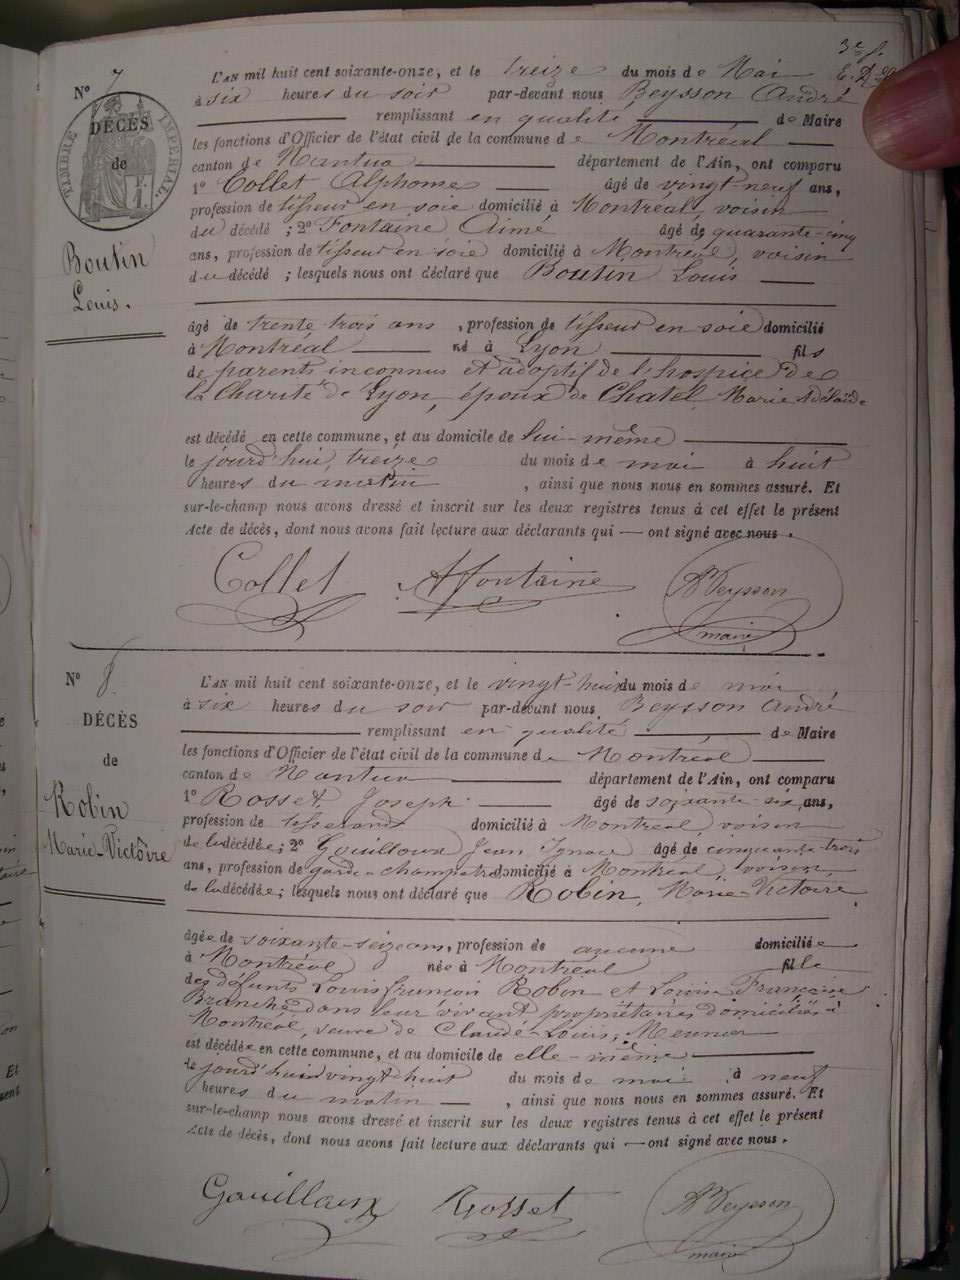 3e f.
E. D.
N° 7
TIMBRE IMPÉRIAL
1 F.
DÉCÈS
de
Boutin
Louis.
L'AN mil huit cent soixante-onze, et le treize du mois de Mai
à six heures du soir par-devant nous Beysson André
remplissant en qualité de Maire
les fonctions d'Officier de l'état civil de la commune de Montréal
canton de Nantua département de l'Ain, ont comparu
1° Collet Alphonse âgé de vingt-neuf ans,
profession de tisseur en soie domicilié à Montréal, voisin
du décédé ; 2° Fontaine Aimé âgé de quarante-cinq
ans, profession de tisseur en soie domicilié à Montréal, voisin
du décédé ; lesquels nous ont déclaré que Boutin Louis
âgé de trente trois ans , profession de tisseur en soie domicilié
à Montréal né à Lyon fils
de parents inconnus et adoptif de l'hospice de
la Charité de Lyon, époux de Chatel Marie Adélaïde
est décédé en cette commune, et au domicile de lui-même
le jourd'hui, treize du mois de mai à huit
heures du matin , ainsi que nous nous en sommes assuré. Et
sur-le-champ nous avons dressé et inscrit sur les deux registres tenus à cet effet le présent
Acte de décès, dont nous avons fait lecture aux déclarants qui — ont signé avec nous.
Collet AFontaine ABeysson
maire
N° 8
DÉCÈS
de
Robin
Marie-Victoire
L'AN mil huit cent soixante-onze, et le vingt-huit du mois de mai
à six heures du soir par-devant nous Beysson André
remplissant en qualité de Maire
les fonctions d'Officier de l'état civil de la commune de Montréal
canton de Nantua département de l'Ain, ont comparu
1° Rosset Joseph âgé de soixante six ans,
profession de tisserand domicilié à Montréal, voisin
de la décédée; 2° Gouilloux Jean Ignace âgé de cinquante-trois
ans, profession de garde-champêtre domicilié à Montréal, voisin,
de la décédée ; lesquels nous ont déclaré que Robin, Marie-Victoire
âgée de soixante-seize ans, profession de aucune domiciliée
à Montréal née à Montréal fille
des défunts Louis françois Robin et Louise Françoise
Branche dans leur vivant propriétaires domiciliés à
Montréal, veuve de Claude-Louis, Meunier
est décédée en cette commune, et au domicile de elle-même
le jourd'hui vingt huit du mois de mai à neuf
heures du matin — , ainsi que nous nous en sommes assuré. Et
sur-le-champ nous avons dressé et inscrit sur les deux registres tenus à cet effet le présent
Acte de décès, dont nous avons fait lecture aux déclarants qui — ont signé avec nous.
Gouilloux Rosset ABeysson
maire